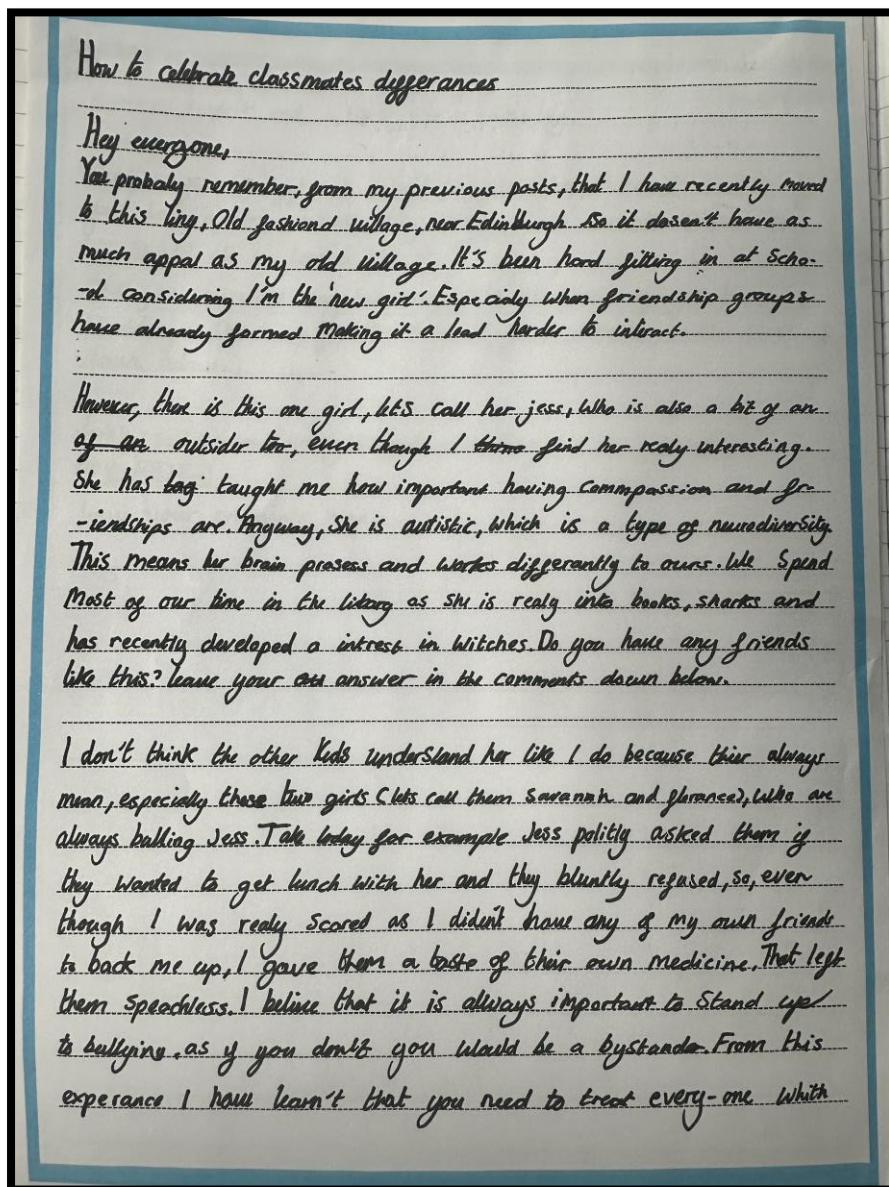 How to celebrate classmates differances
Hey everyone,
You probaly remember, from my previous posts, that I have recently moved
to this tiny, Old fashiond village, near Edinburgh so it dosen't have as
much appal as my old village. It's been hard fitting in at scho-
-ol considering I'm the 'new girl'. Especialy when friendship groups
have already formed making it a load harder to interact.
However, there is this one girl, let's call her, jess, Who is also a bit of an
of an outsider too, even though I think find her realy interesting.
She has tag taught me how important having commpassion and fr-
-iendships are. Anyway, She is autistic, which is a type of neurodiversity.
This means her brain prosess and works differantly to ours. We Spend
most of our time in the libary as she is realy into books, sharks and
has recently developed a intrest in witches. Do you have any friends
like this? leave your answer in the comments down below.
I don't think the other kids understand her like I do because thier always
mean, especially those two girls (lets call them Savannah and florance), who are
always balling Jess. Take today for example Jess politly asked them if
they wanted to get lunch with her and they bluntly refused, so, even
though I was realy scared as I didein't have any of my own friends
to back me up, I gave them a taste of their own medicine. That left
them speachless. I belive that it is always important to Stand up
to bullying, as if you don't you would be a bystander. From this
experance I have learn't that you need to treat every-one whith